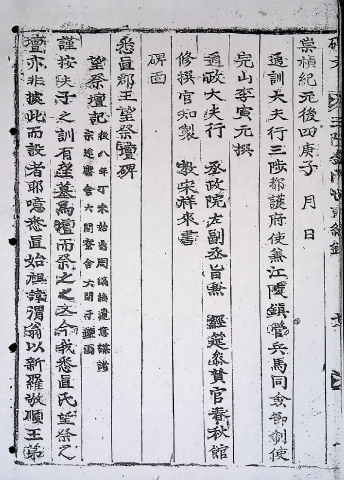 崇禎紀元後四庚子 月 日
通訓大夫行三陟都護府使兼江陵鎭管兵馬同僉節制使
完山李寅元撰
通政大夫行 丞政院左副丞旨兼 經筵參贊官春秋館
修撰官知製 敎宋祥來書
碑面
悉直郡王望祭壇碑
望祭壇記 後八年丁未始自周
謹按朱子之訓有望墓爲壇而祭之之文今我悉直氏望祭之
壇亦非據此而設者耶噫悉直始祖諱渭翁以新羅敬順王第